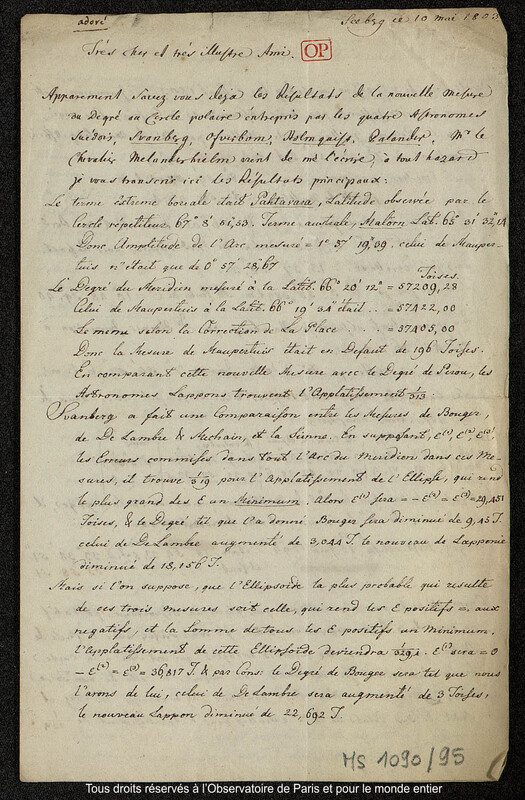 adoré
Seebrg ce 10 mai 1803
Très cher et très illustre Ami.
OP
Apparement savez vous deja les Résultats de la nouvelle Mesure
du Degré au Cercle polaire entrepris par les quatre Astronomes
Suédois, Svanberg, Ofverbom, Holmquist, Palander, Mr le
Chevalier Melanderhielm vient de me l'ecrire, à tout hazard
je vous transcris ici les Résultats principaux:
Le terme éxtreme boreale était Pahtavara, Latitude observée par le
Cercle répétiteur 67° 8' 51,53. Terme australe, Malörn Lat. 65° 31' 32",14
Donc Amplitude de l'Arc mesuré = 1° 37' 19",39 celui de Mauper-
tuis n'était que de 0° 57' 28",67
Toises.
Le Degré du Meridien mesuré à la Latit. 66° 20' 12" = 57209,28
Celui de Maupertuis à la Latit. 66° 19' 34" était .. = 57422,00
Le meme selon la Correction de La Place .. = 57405,00
Donc la Mesure de Maupertuis était en Defaut de 196 Toises.
En comparant cette nouvelle Mesure avec le Degré de Perou, les
Astronomes Lappons trouvent l'Applatissement 1/313:
Svanberg a fait une Comparaison entre les Mesures de Bouger,
de De Lambre & Mechain, et la Sienne. En supposant, E(1), E(2), E(3),
les Erreurs commises dans tout l'Arc du Meridien dans ces Me-
sures, il trouve 1/319 pour l'Applatissement de l'Ellipse, qui rend
le plus grand des E un Minimum. Alors E(1) sera = - E(2) = E(3) = 29,451
Toises, & le Degré tel que l'a donné Bouger sera diminué de 9,45 T.
celui de De Lambre augmenté de 3,044 T. le nouveau de Lapponie
diminué de 18,156 T.
Mais si l'on suppose, que l'Ellipsoide la plus probable qui resulte
de ces trois mesures soit celle, qui rend les E positifs = aux
negatifs, et la Somme de tous les E positifs un Minimum.
l'Applatissement de cette Ellipsoide deviendra 1/329,1. E(1) sera = 0
- E(2) = E(3) = 36,817 T. & par Cons: le Degré de Bouger sera tel que nous
l'avons de lui, celui de De Lambre sera augmenté de 3 Toises,
le nouveau Lappon diminué de 22,692 T.
MS 1090/95
Tous droits réservés à l'Observatoire de Paris et pour le monde entier